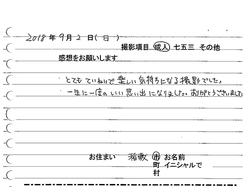 2018年9月2日(日)
撮影項目 成人 七五三 その他
感想をお願いします
とてもていねいで楽しい気持ちになる撮影でした。
一生に一度のいい思い出になりました。ありがとうございました
お住まい 市 お名前
町 イニシャルで
村